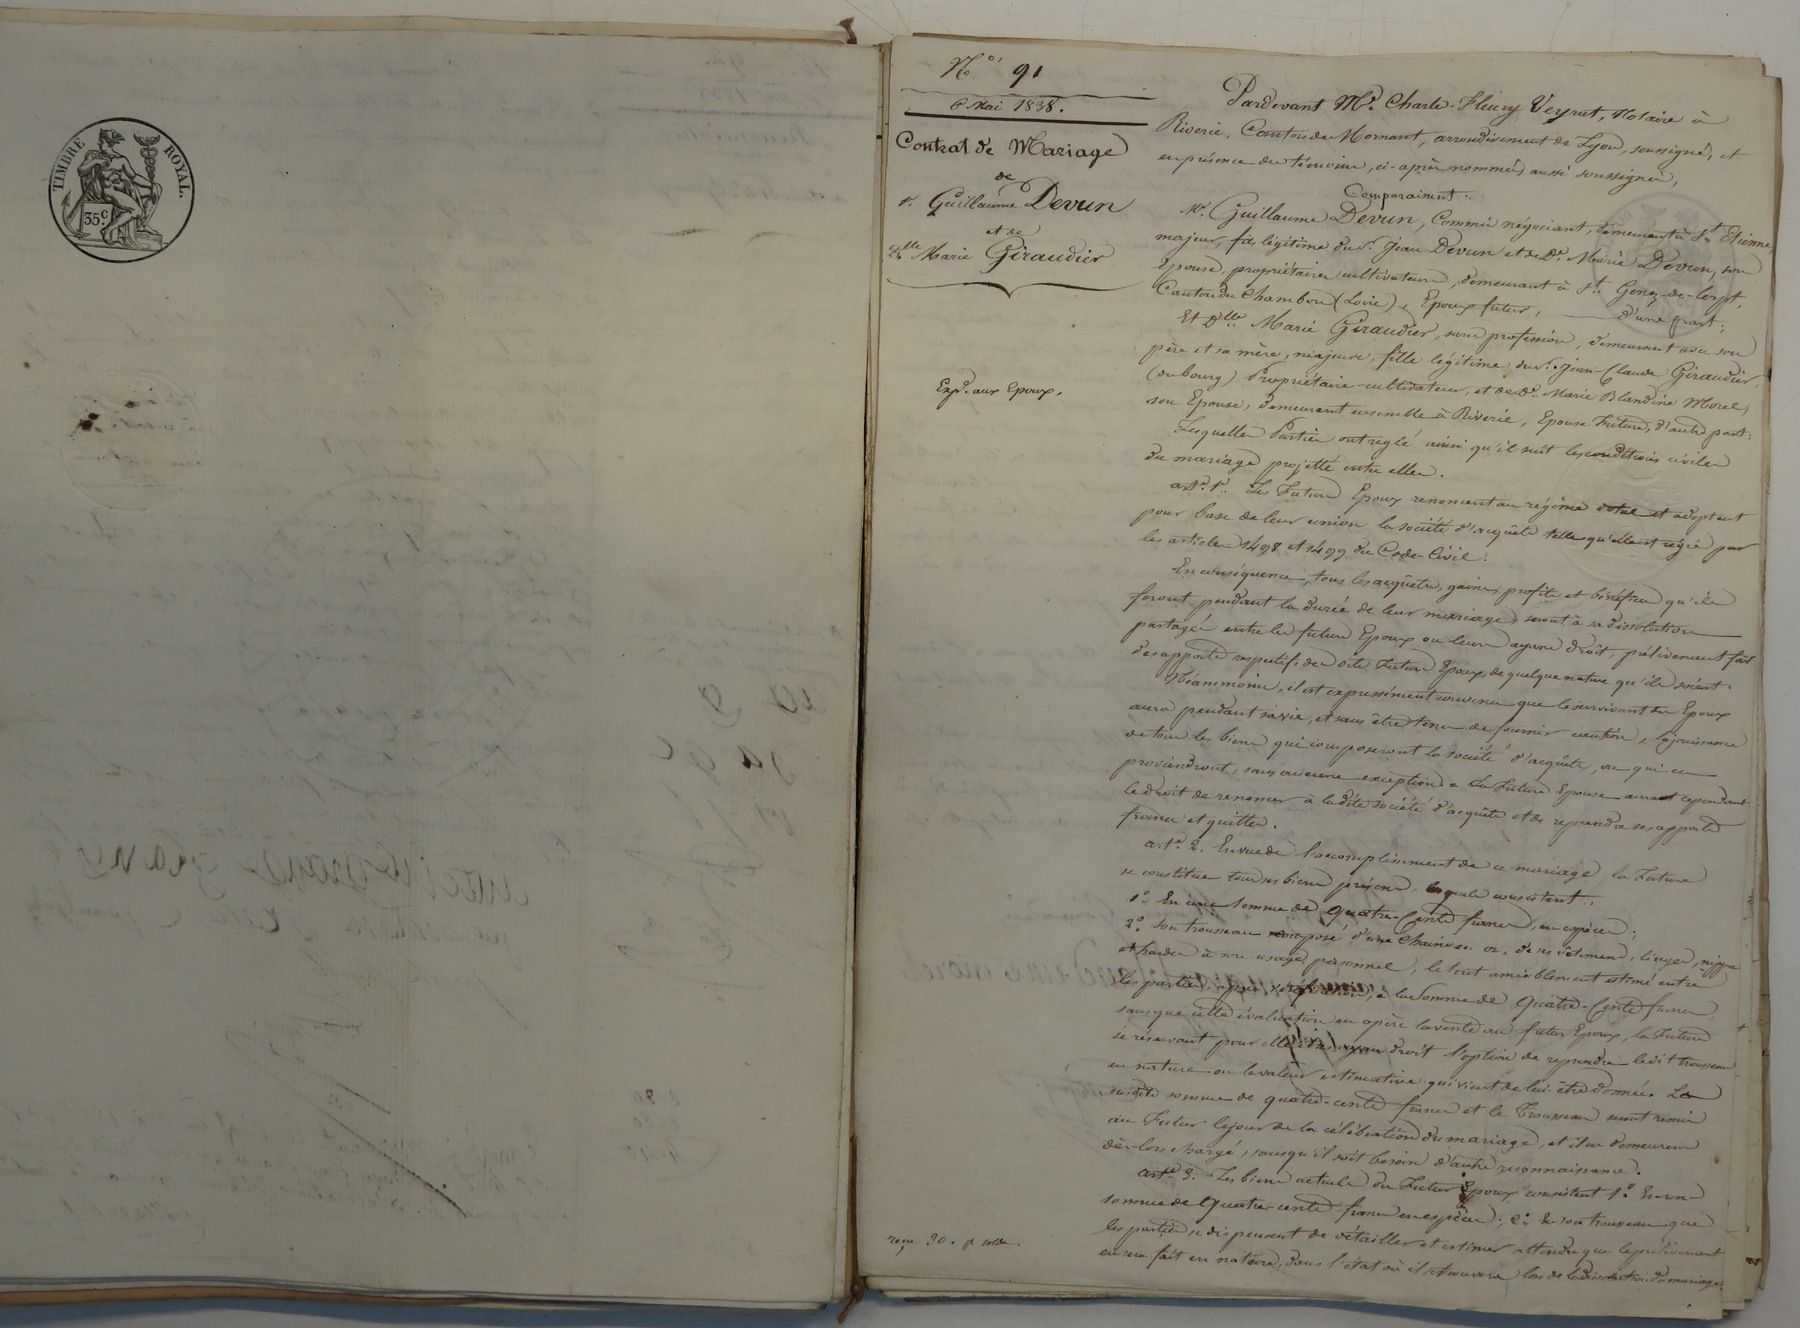 TIMBRE ROYAL.
35.c
N.o 91
6 Mai 1838.
Contrat de Mariage
de
Sr. Guillaume Devun
et de
Dlle Marie Giraudier
Expn. aux Epoux.
reçu 30. p. solde.
Pardevant Me. Charles-Fleury Veyrat, Notaire à
Riverie, Canton de Mornant, arrondissement de Lyon, soussigné, et
en présence des témoins, ci-après nommés, aussi soussignés,
Comparaissent:
Mr. Guillaume Devun, Commis négociant, demeurant à St. Etienne,
majeur, fils légitime du Sr. Jean Devun et de De. Marie Devun, son
Epouse, propriétaires cultivateurs, demeurant à St. Genez-de-Lerpt,
Canton du Chambon (Loire), Epoux futur, d'une part;
Et Dlle. Marie Giraudier, sans profession, demeurant avec son
père et sa mère, majeure, fille légitime du Sr. Jean-Claude Giraudier,
(du bourg) Propriétaire-cultivateur, et de De. Marie Blandine Morel,
son Epouse, demeurant ensemble à Riverie, Epouse Future, d'autre part;
Lesquelles Parties ont réglé ainsi qu'il suit les conditions civiles
du mariage projetté entre elles.
art. 1er. Les Futurs Epoux renoncent au régime dotal et adoptent
pour base de leur union la société d'acquêts telle qu'elle est régie par
les articles 1498 et 1499 du Code-Civil.
En conséquence, tous les acquêts, gains, profits et bénéfices qu'ils
feront pendant la durée de leur mariage, seront à sa dissolution
partagés entre les futurs Epoux ou leurs ayans droit, prélèvement fait
des apports respectifs des dits Futurs Epoux, de quelque nature qu'ils soient.
Néanmoins, il est expressément convenu que le survivant des Epoux
aura pendant sa vie, et sans être tenu de fournir caution, la jouissance
de tous les biens qui composeront la société d'acquêts, ou qui en
proviendront, sans aucune exception. La Future Epouse aura cependant
le droit de renoncer à la dite société d'acquêts et de reprendre ses apports
francs et quittes.
art. 2. En vue de l'accomplissement de ce mariage la Future
se constitue tous ses biens présens, lesquels consistent:
1o. En une somme de quatre-Cents francs, en espèces;
2o. son trousseau composé d'une Chaine en or, de ses vêtemens, linges, nippes
et hardes à son usage personnel, le tout amiablement estimé entre
les parties, après vérification, à la somme de quatre-Cents francs
sans que cette évaluation en opère la vente au futur Epoux, la Future
se réservant pour elle et ses ayans droit l'option de reprendre ledit trousseau
en nature ou la valeur estimative qui vient de lui être donnée. La
susdite somme de quatre-cents francs et le Trousseau seront remis
au Futur le jour de la célébration du mariage, et il en demeurera
dès-lors chargé, sans qu'il soit besoin d'autre reconnaissance.
art. 3. Les biens actuels du Futur Epoux consistent 1o. En une
somme de quatre-cents francs en espèces; 2o. En son trousseau que
les parties se dispensent de détailler et estimer attendu que le prélèvement
en sera fait en nature, dans l'état où il se trouvera lors de la dissolution du mariage,